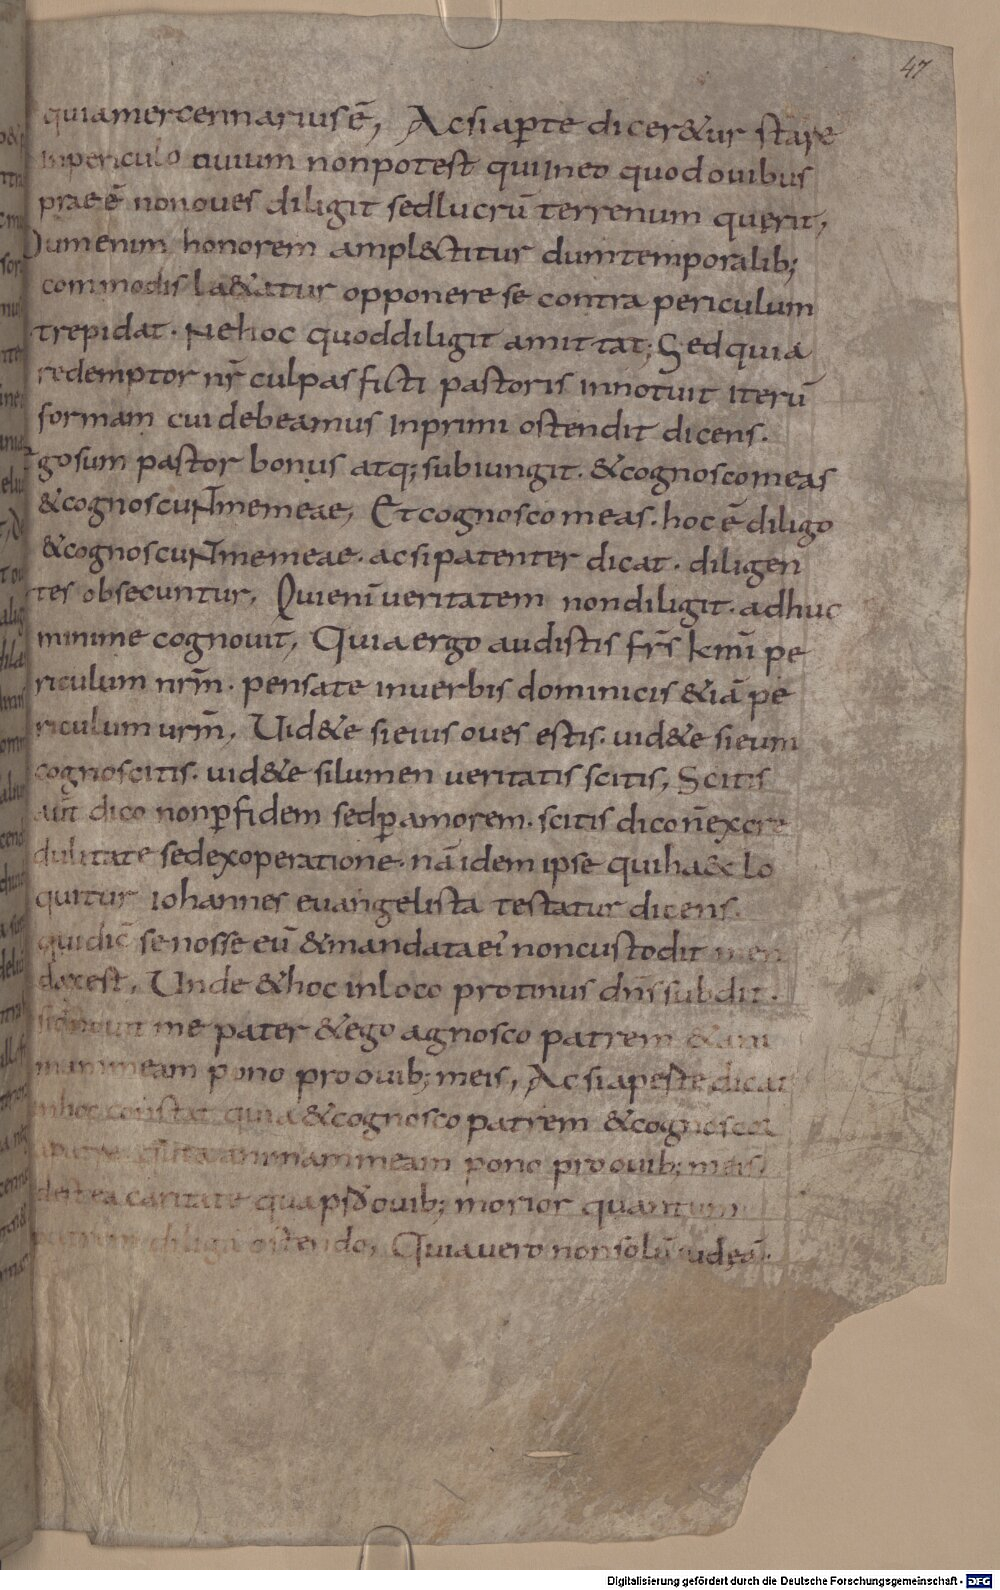 47
quia mercennarius ē, Ac si aꝑte dicer&ur stare
in periculo ouium non potest qui in eo quod ouibus
prae ē non oues diligit sed lucrū terrenum querit,
Dum enim honorem ampl&titur dum temporalib;
commodis la&atur opponere se contra periculum
trepidat. Ne hoc quod diligit amittat; Sed quia
redemptor nr̄ culpas ficti pastoris innotuit iterū
formam cui debeamus inprimi ostendit dicens.
Ego sum pastor bonus atq; subiungit. & cognosco meas
& cognoscunt me meae, Et cognosco meas. hoc ē diligo
& cognoscunt me meae. ac si patenter dicat. diligen
tes obsecuntur, Qui enī ueritatem non diligit. adhuc
minime cognouit, Quia ergo audistis fr̄s kmī pe
riculum nrm̄. pensate in uerbis dominicis &iā pe
riculum urm̄, Uid&e si eius oues estis. uid&e si eum
cognoscitis. uid&e si lumen ueritatis scitis, Scitis
aūt dico non ꝑ fidem sed ꝑ amorem. scitis dico n̄ ex cre
dulitate sed ex operatione. nā idem ipse qui ha&c lo
quitur iohannes euangelista testatur dicens.
qui dic̄ se nosse eū & mandata ei' non custodit men
dax est, Unde & hoc in loco protinus dn̄s subdit.
sic nouit me pater & ego agnosco patrem & ani
mam meam pono pro ouib; meis, Ac si apeste dicat
in hoc constat quia & cognosco patrem & cognoscor
a patre quia animam meam pono pro ouib; meis,
dest ea caritate qua ꝑ ouib; morior quantum
patrem diliga ostendo, Quia uero non solū iudeā.
Digitalisierung gefördert durch die Deutsche Forschungsgemeinschaft - DFG